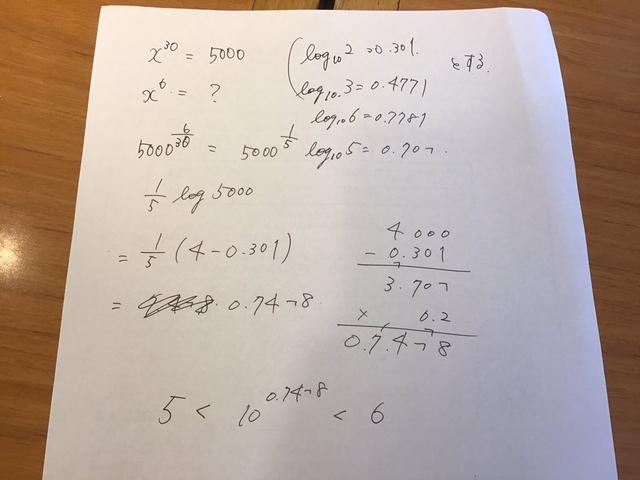 x^30 = 5000 (log₁₀2 = 0.301. とする.
x^6 = ? log₁₀.3 = 0.4771
log₁₀6 = 0.7781
5000^(6/30) = 5000^(1/5) log₁₀5 = 0.707.
1/5 log 5000
= 1/5 (4 - 0.301)
= 0.7478
4.000
- 0.301
3.707
× 0.2
0.7478
5 < 10^0.7478 < 6